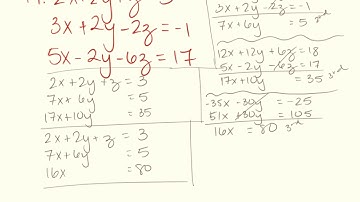 2x + 2y + z = 3
3x + 2y - 2z = -1
5x - 2y - 6z = 17
2x + 2y + z = 3
7x + 6y = 5
17x + 10y = 35
2x + 2y + z = 3
7x + 6y = 5
16x = 80
3x + 2y - 2z = -1
7x + 6y = 5 3rd
12x + 12y + 6z = 18
5x - 2y - 6z = 17
17x + 10y = 35 3rd
-35x - 30y = -25
51x + 30y = 105
16x = 80 3rd